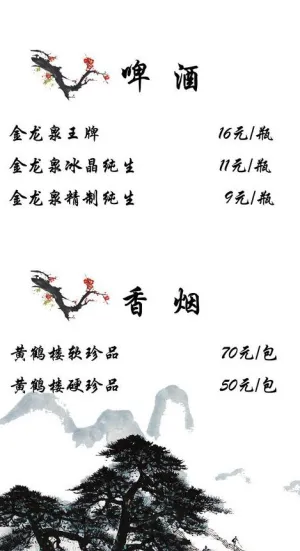 啤酒
金龙泉王牌 16元/瓶
金龙泉冰晶纯生 11元/瓶
金龙泉精制纯生 9元/瓶
香烟
黄鹤楼软珍品 70元/包
黄鹤楼硬珍品 50元/包